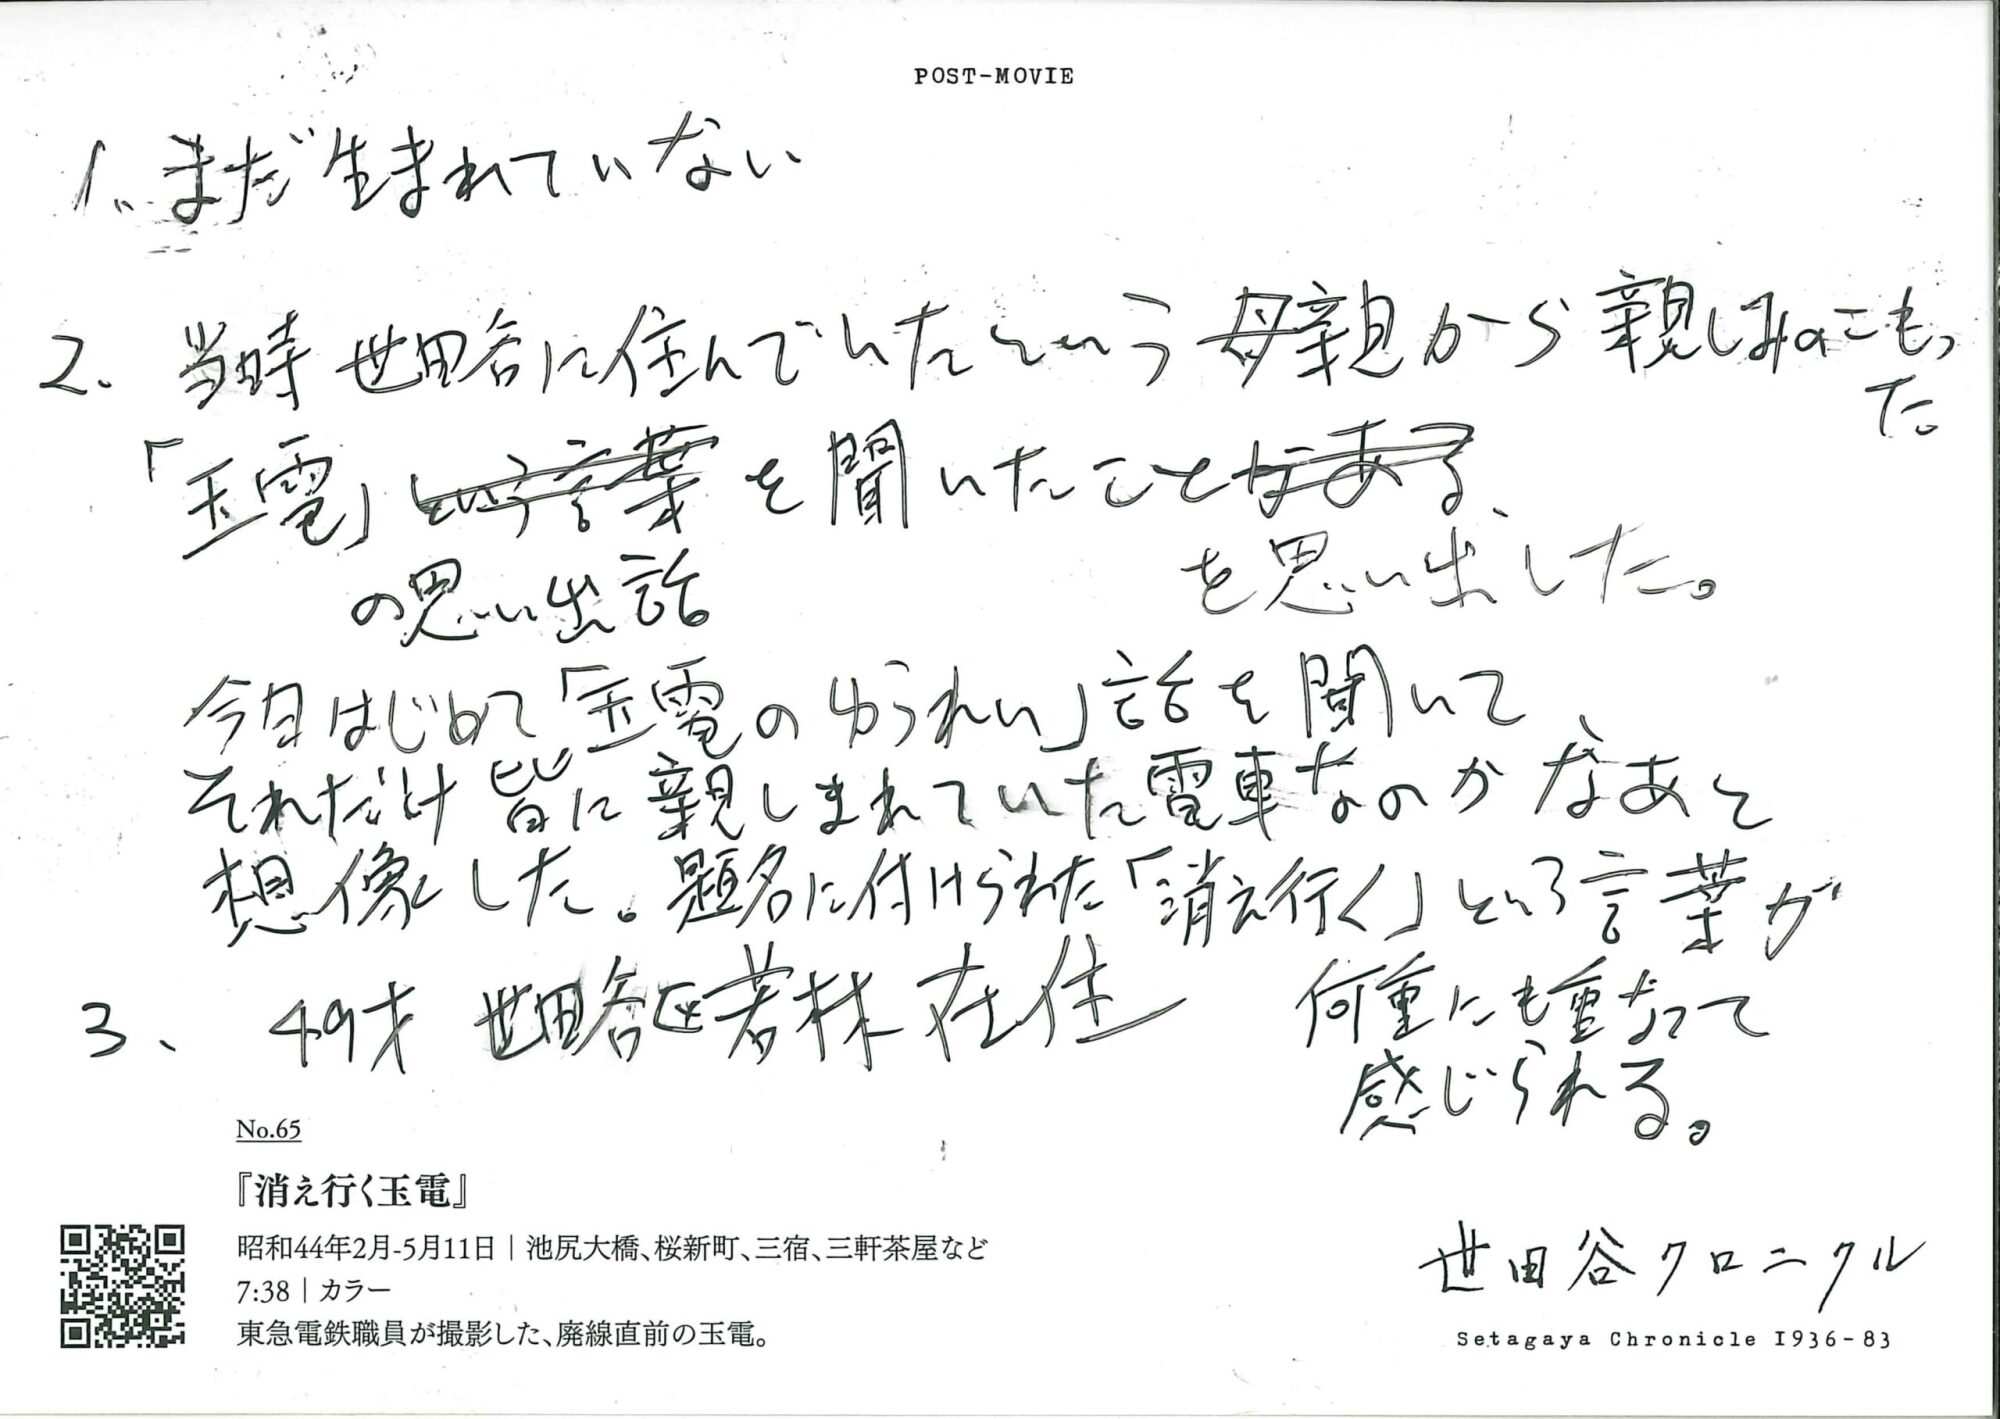 POST-MOVIE
1、まだ生まれていない
2、当時 世田谷に住んでいたという母親から親しみのこもっ
た
「玉電」という言葉を聞いたことがある、
の思い出話
を思い出した。
今日はじめて「玉電のゆうれい」話を聞いて、
それだけ皆に親しまれていた電車なのかなあと
想像した。題名に付けられた「消え行く」という言葉が
何重にも重なって
感じられる。
3、49才 世田谷区若林在住
No.65
『消え行く玉電』
昭和44年2月-5月11日｜池尻大橋、桜新町、三宿、三軒茶屋など
7:38｜カラー
東急電鉄職員が撮影した、廃線直前の玉電。
世田谷クロニクル
Setagaya Chronicle 1936-83